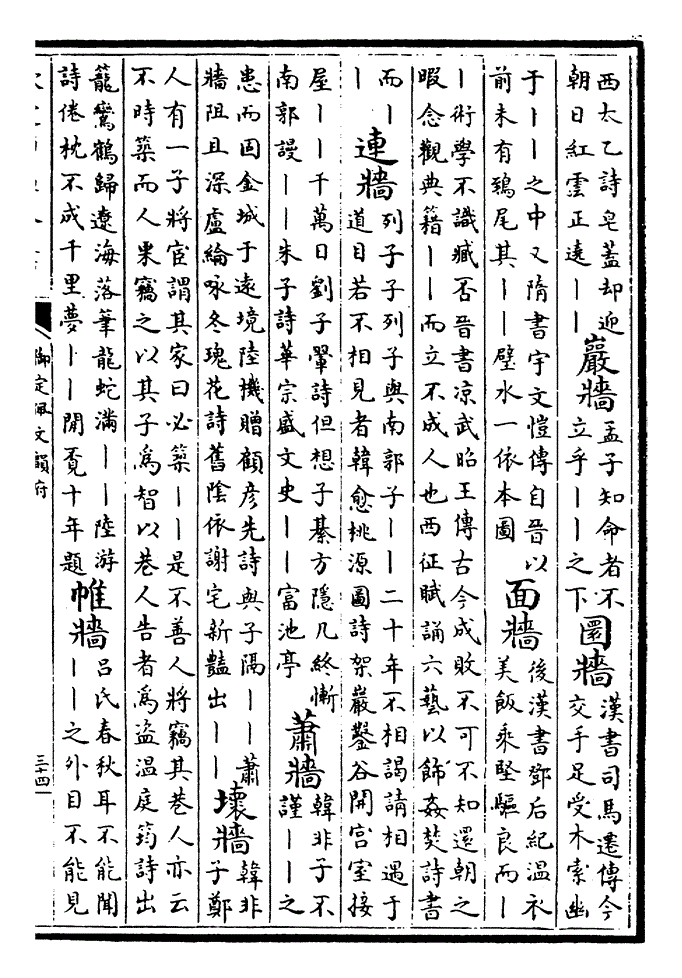 西太乙詩皂蓋却迎
朝日紅雲正遶丨丨
巖牆
孟子知命者不
立乎丨丨之下
圜牆
漢書司馬遷傳今
交手足受木索幽
于丨丨之中又隋書宇文愷傳自晉以
前未有鴟尾其丨丨璧水一依本圖
面牆
後漢書鄧后紀温衣
美飯乘堅驅良而丨
丨術學不識臧否晉書凉武昭王傳古今成敗不可不知還朝之
暇念觀典籍丨丨而立不成人也西征賦誦六藝以飾姦焚詩書
而丨
丨
連牆
列子子列子與南郭子丨丨二十年不相謁請相遇于
道目若不相見者韓愈桃源圖詩架巖鑿谷開宫室接
屋丨丨千萬日劉子翬詩但想子綦方隱几終慚
南郭謾丨丨朱子詩華宗盛文史丨丨富池亭
蕭牆
韓非子不
謹丨丨之
患而固金城于遠境陸機贈顧彦先詩與子隔丨丨蕭
牆阻且深盧綸咏冬瑰花詩舊陰依謝宅新豔出丨丨
壞牆
韓非
子鄭
人有一子將宦謂其家曰必築丨丨是不善人將竊其巷人亦云
不時築而人果竊之以其子爲智以巷人告者爲盜温庭筠詩出
籠鸞鶴歸遼海落筆龍蛇滿丨丨陸游
詩倦枕不成千里夢丨丨閒覔十年題
帷牆
吕氏春秋耳不能聞
丨丨之外目不能見
御定佩文韻府
三十四